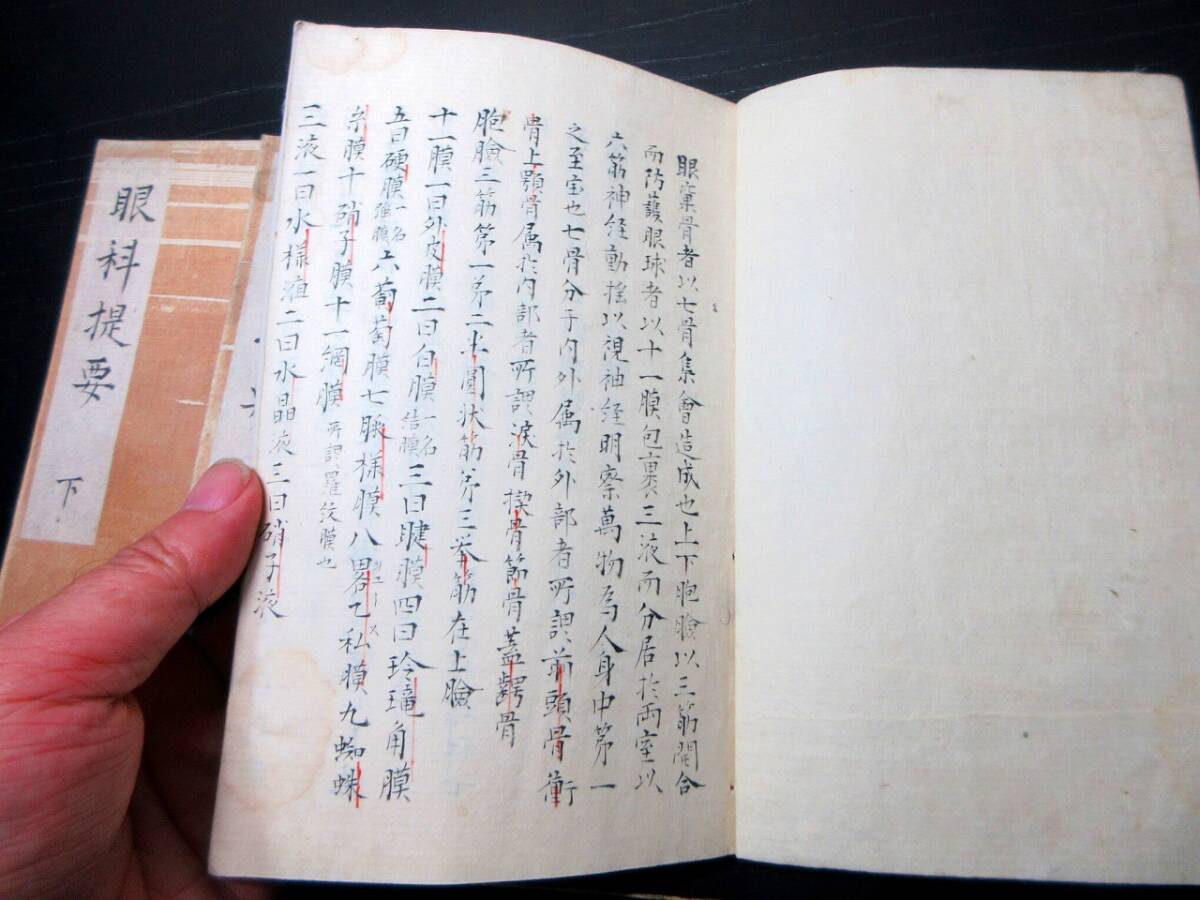 眼窠骨者以七骨集會造成也上下胞瞼以三筋開合
而防護眼球者以十一膜包裹三液而分居於両室以
六筋神経動揺以視神経明察萬物為人身中第一
之至宝也七骨分于内外属於外部者所謂前頭骨衝
骨上顎骨属於内部者所謂涙骨楔骨節骨蓋齶骨
胞瞼三筋第一第二半圓状筋第三挙筋在上瞼
十一膜一曰外皮膜二曰白膜一名結膜三曰睷膜四曰玲瓏角膜
五曰硬膜一名強膜六葡萄膜七脈様膜八畧乙私膜九蜘蛛
糸膜十硝子膜十一網膜所謂羅紋膜也
三液一曰水様液二曰水晶液三曰硝子液
眼科提要
下